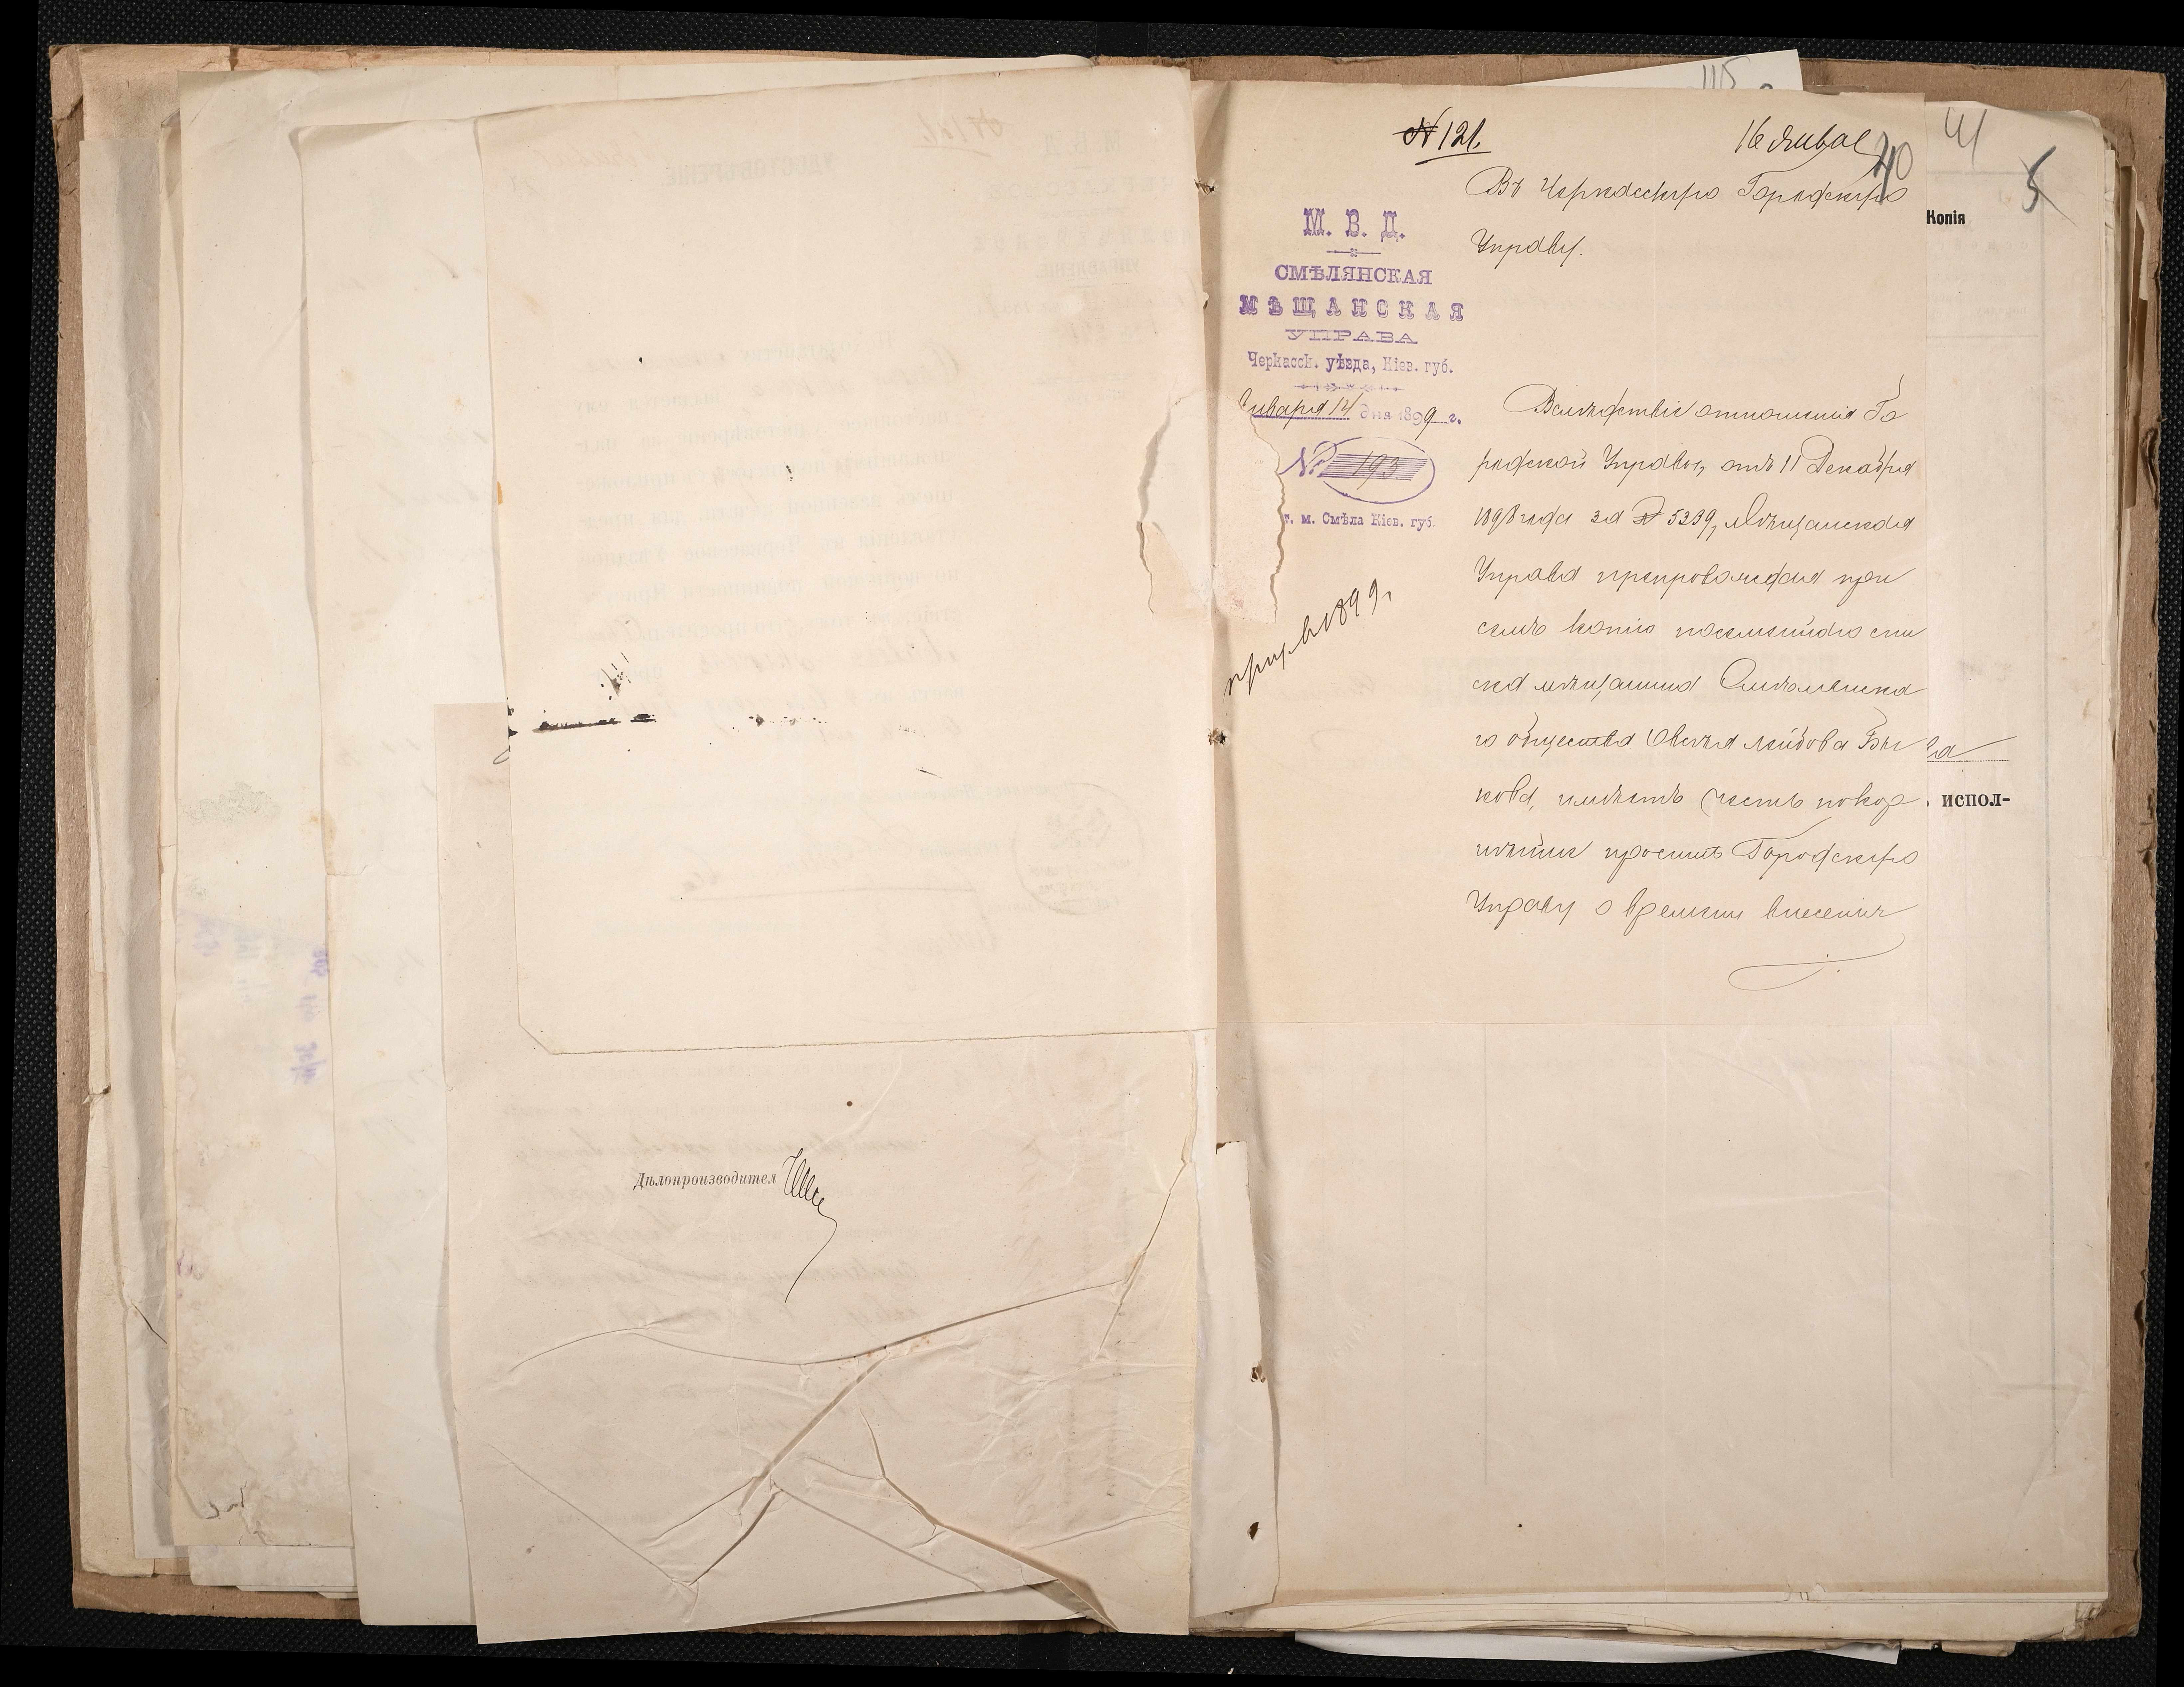 Дѣлопроизводител
№ 121.
16 Января
40
41
5
115
Въ Черкасскую Городскую
Управу.
М. В. Д.
СМѢЛЯНСКАЯ
МѢЩАНСКАЯ
УПРАВА
Черкасск. уѣзда, Кіев. губ.
Января 14 дня 1899 г.
№ 193
г. м. Смѣла Кіев. губ.
призыв 1899 г.
Вслѣдствіе отношенія Го
родской Управы, отъ 11 Декабря
1898 года за № 5339, Мѣщанская
Управа препровождая при
семъ копію посемейнаго спи
ска мѣщанина Смѣлянска
го общества Овсѣя Лейбова Бы
кова, имѣетъ честь покор
нѣйше просить Городскую
Управу о времени внесенія
Копія
испол-